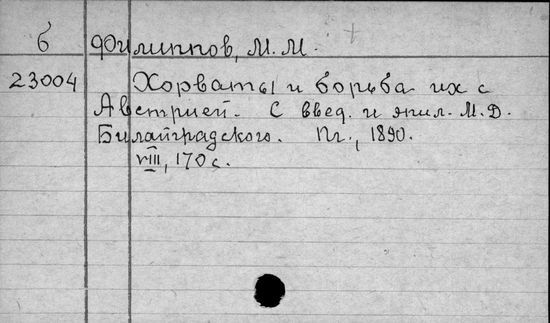 б Филиппов, М. М.
23004 Хорваты и борьба их с
Австрией. С введ. и эпил. М. Д.
Билайградского. Пг., 1890.
VIII, 170 с.